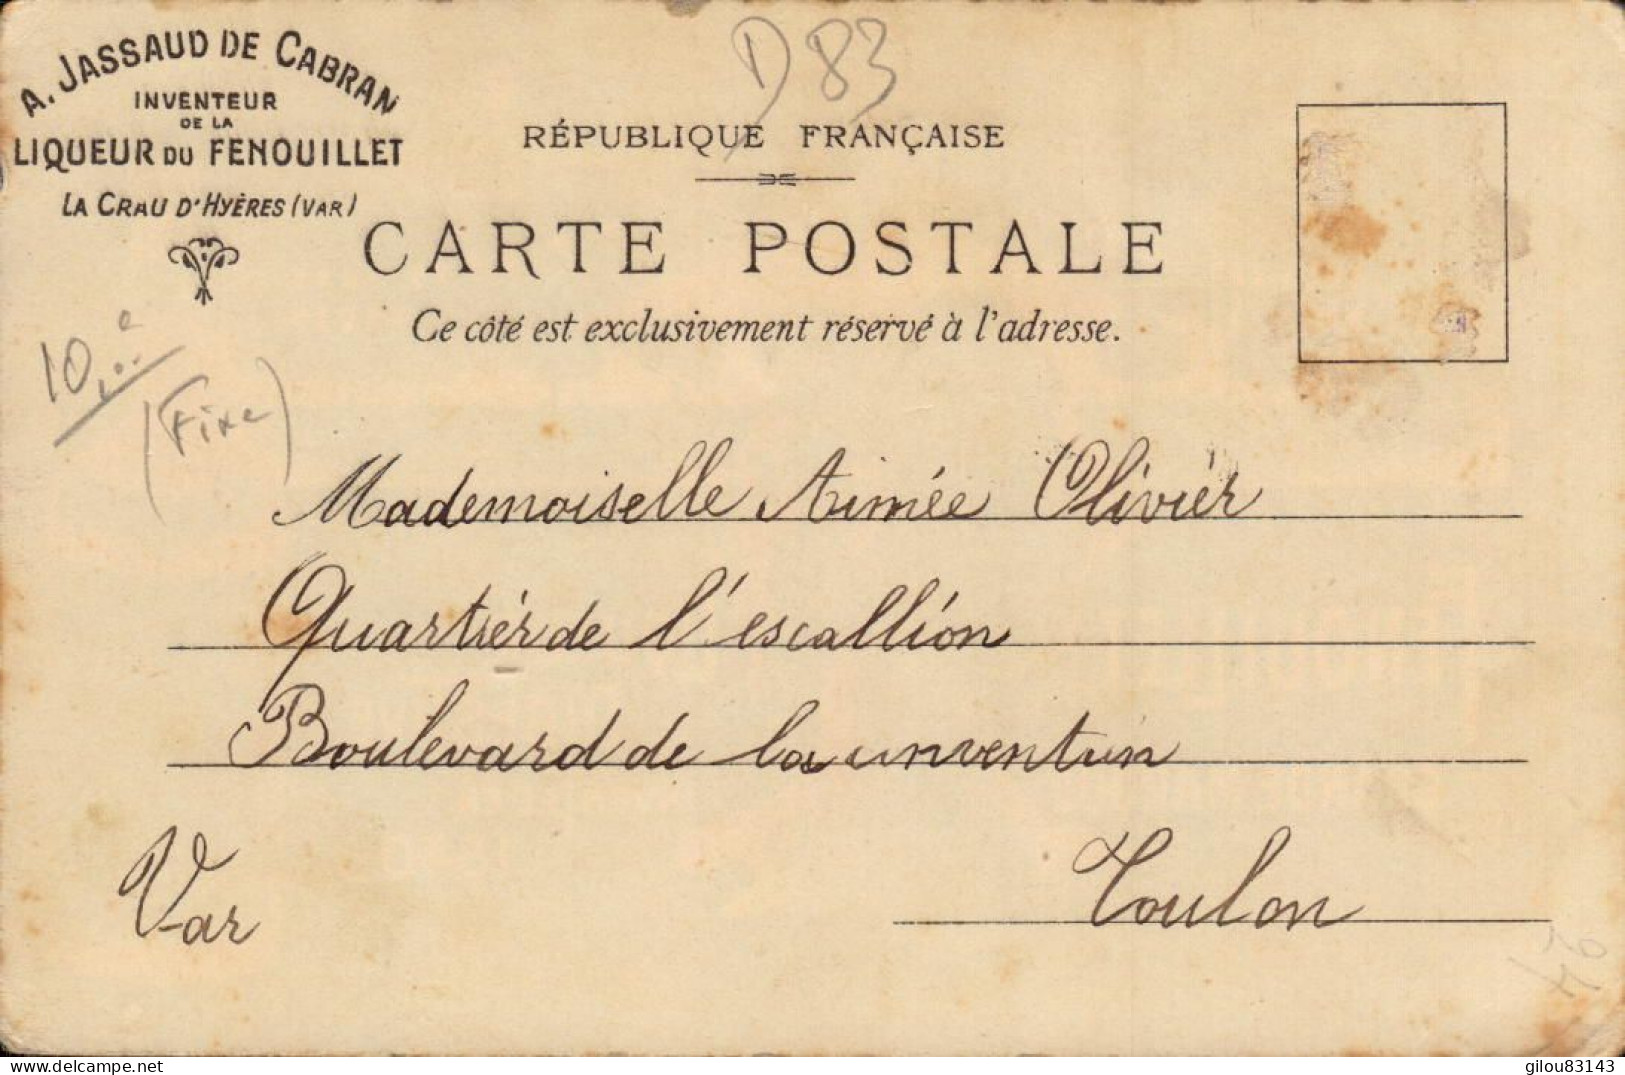 A. JASSAUD DE CABRAN
INVENTEUR
DE LA
LIQUEUR DU FENOUILLET
LA CRAU D'HYÈRES (VAR)
D 83
RÉPUBLIQUE FRANÇAISE
CARTE POSTALE
Ce côté est exclusivement réservé à l'adresse.
10,00 e
(Fixe)
Mademoiselle Aimée Olivier
Quartier de l'escallion
Boulevard de la inventin
Toulon
Var
delcampe.net
gilou83143